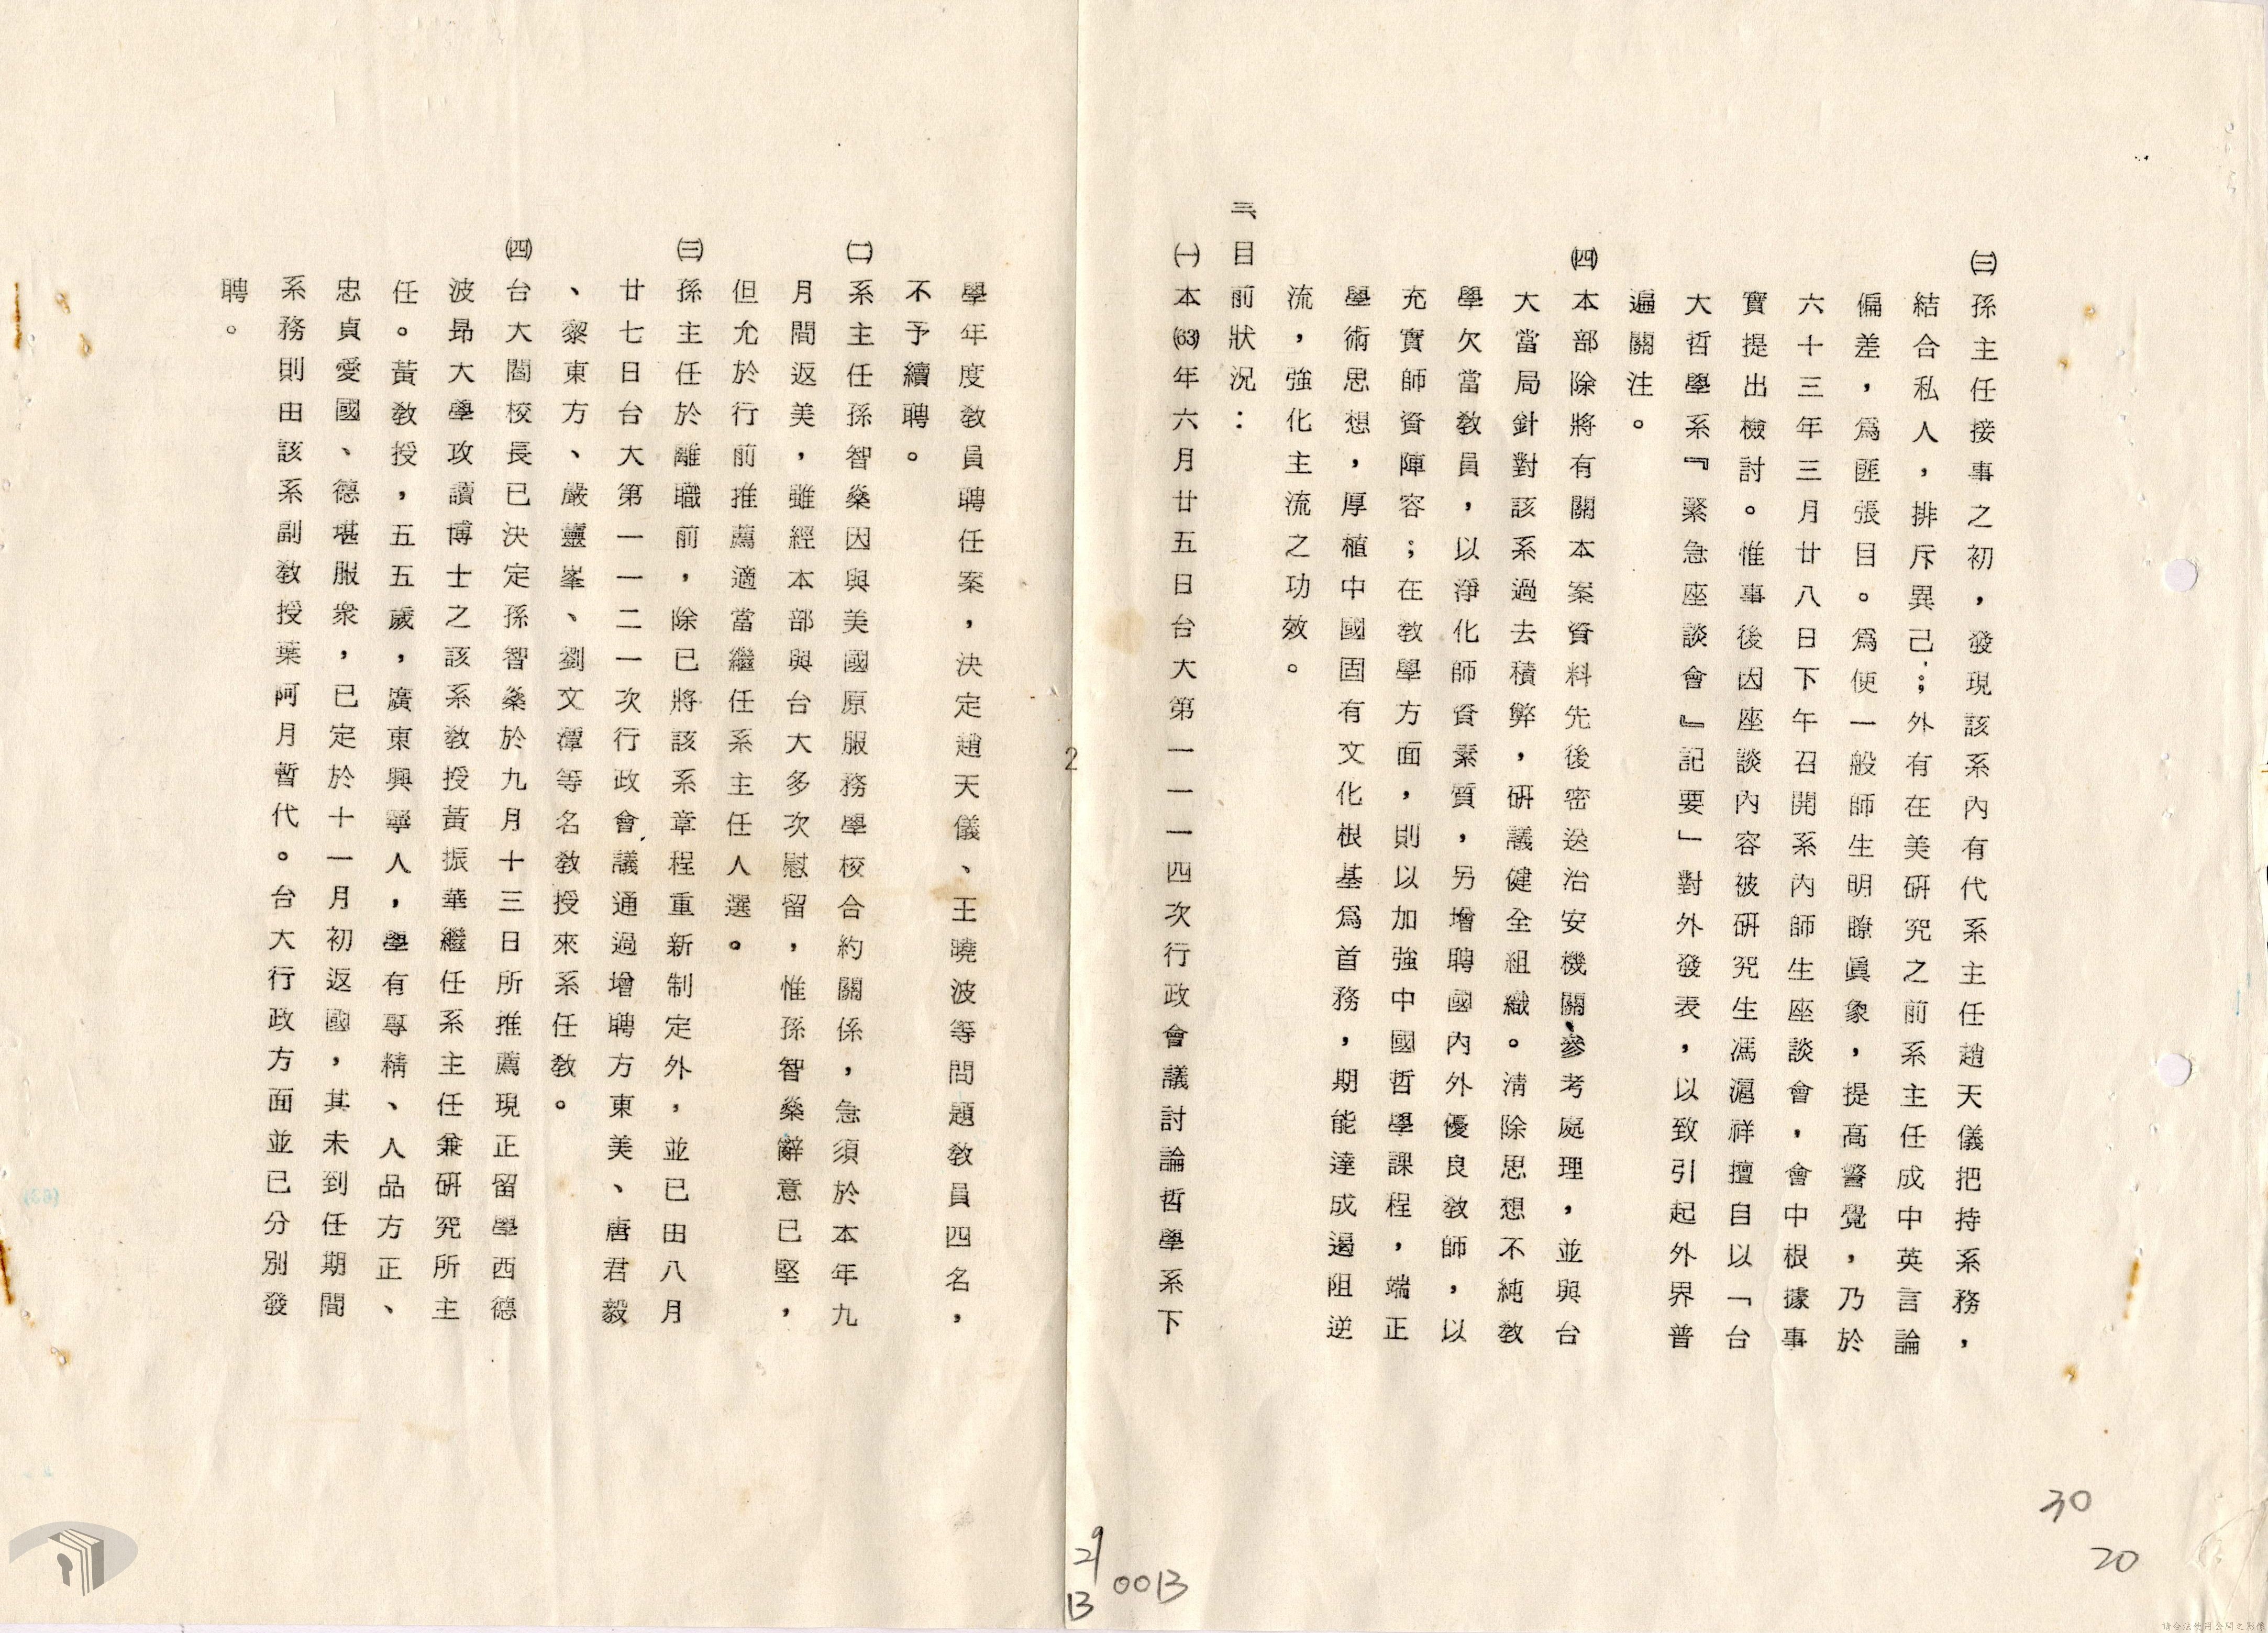 ㈢孫主任接事之初，發現該系內有代系主任趙天儀把持系務，
結合私人，排斥異己；外有在美硏究之前系主任成中英言論
偏差，爲匪張目。爲使一般師生明瞭眞象，提高警覺，乃於
六十三年三月廿八日下午召開系內師生座談會，會中根據事
實提出檢討。惟事後因座談內容被硏究生馮滬祥擅自以「台
大哲學系『緊急座談會』記要」對外發表，以致引起外界普
遍關注。
㈣本部除將有關本案資料先後密送治安機關參考處理，並與台
大當局針對該系過去積弊，硏議健全組織。淸除思想不純敎
學欠當敎員，以淨化師資素質，另增聘國內外優良敎師，以
充實師資陣容；在敎學方面，則以加強中國哲學課程，端正
學術思想，厚植中國固有文化根基爲首務，期能達成遏阻逆
流，強化主流之功效。
三、目前狀況：
㈠本(63)年六月廿五日台大第一一一四次行政會議討論哲學系下
學年度敎員聘任案，決定趙天儀、王曉波等問題敎員四名，
不予續聘。
㈡系主任孫智燊因與美國原服務學校合約關係，急須於本年九
月間返美，雖經本部與台大多次慰留，惟孫智燊辭意已堅，
但允於行前推薦適當繼任系主任人選。
㈢孫主任於離職前，除已將該系章程重新制定外，並已田八月
廿七日台大第一一二一次行政會議通過增聘方東美、唐君毅
、黎東方、嚴靈峯、劉文潭等名敎授來系任敎。
㈣台大閻校長已決定孫智燊於九月十三日所推薦現正留學西德
波昂大學攻讀博士之該系敎授黃振華繼任系主任兼硏究所主
任。黃敎授，五五歲，廣東興寧人，學有專精、人品方正、
忠貞愛國、德堪服衆，已定於十一月初返國，其未到任期間
系務則田該系副敎授葉阿月暫代。台大行政方面並已分別發
聘。
2
30
20
29
13
0013
請合法使用公開之影像